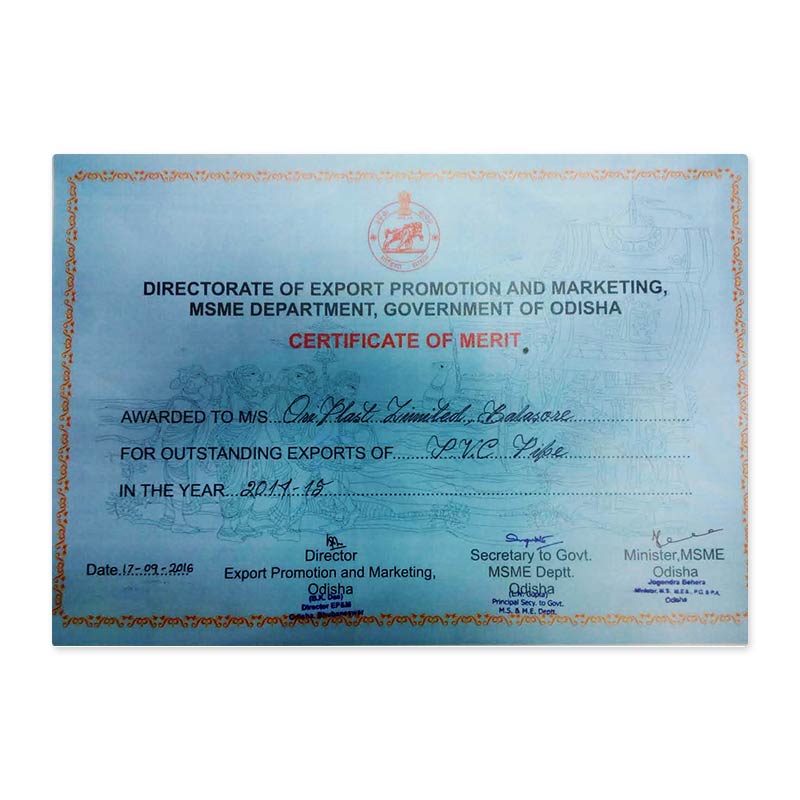 DIRECTORATE OF EXPORT PROMOTION AND MARKETING,
MSME DEPARTMENT, GOVERNMENT OF ODISHA
CERTIFICATE OF MERIT
AWARDED TO M/S...Ori Plast Limited, Balasore
FOR OUTSTANDING EXPORTS OF......P.V.C. Pipe
IN THE YEAR...2014-15
Date.17-09-2016
Director
Export Promotion and Marketing,
Odisha
(B.K. Das)
Director EP&M
Odisha, Bhubaneswar
Secretary to Govt.
MSME Deptt.
Odisha
(L.N. Gupta)
Principal Secy. to Govt.
M.S. & M.E. Deptt.
Minister,MSME
Odisha
Jogendra Behera
Minister, M.S. M.E.&., P.G. & P.A,
Odisha